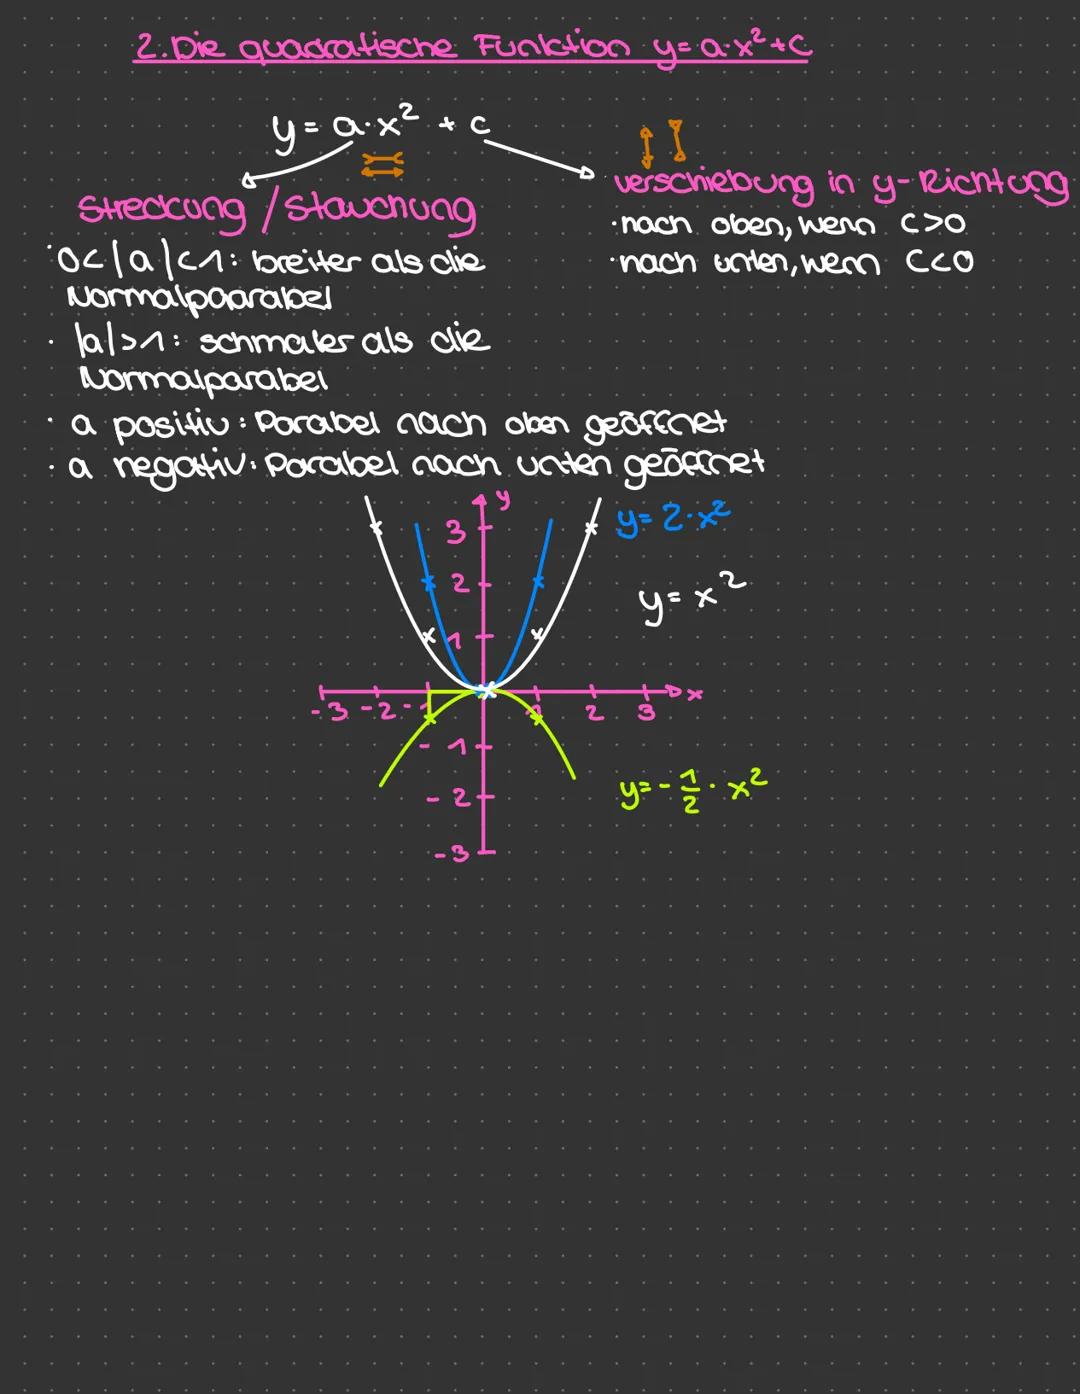 2. Die quadratische Funktion y = a·x² + c
y = a·x² + c
Streckung / Stauchung
· 0 < |a| < 1: breiter als die
Normalpaarabel
· |a| > 1: schmaler als die
Normalparabel
· a positiv: Parabel nach oben geöffnet
· a negativ: Parabel nach unten geöffnet
verschiebung in y-Richtung
· nach oben, wenn c > 0
· nach unten, wenn c < 0
y
3
2
1
-3 -2 -1 1 2 3 x
-1
-2
-3
y = 2·x²
y = x²
y = -1/2 · x²